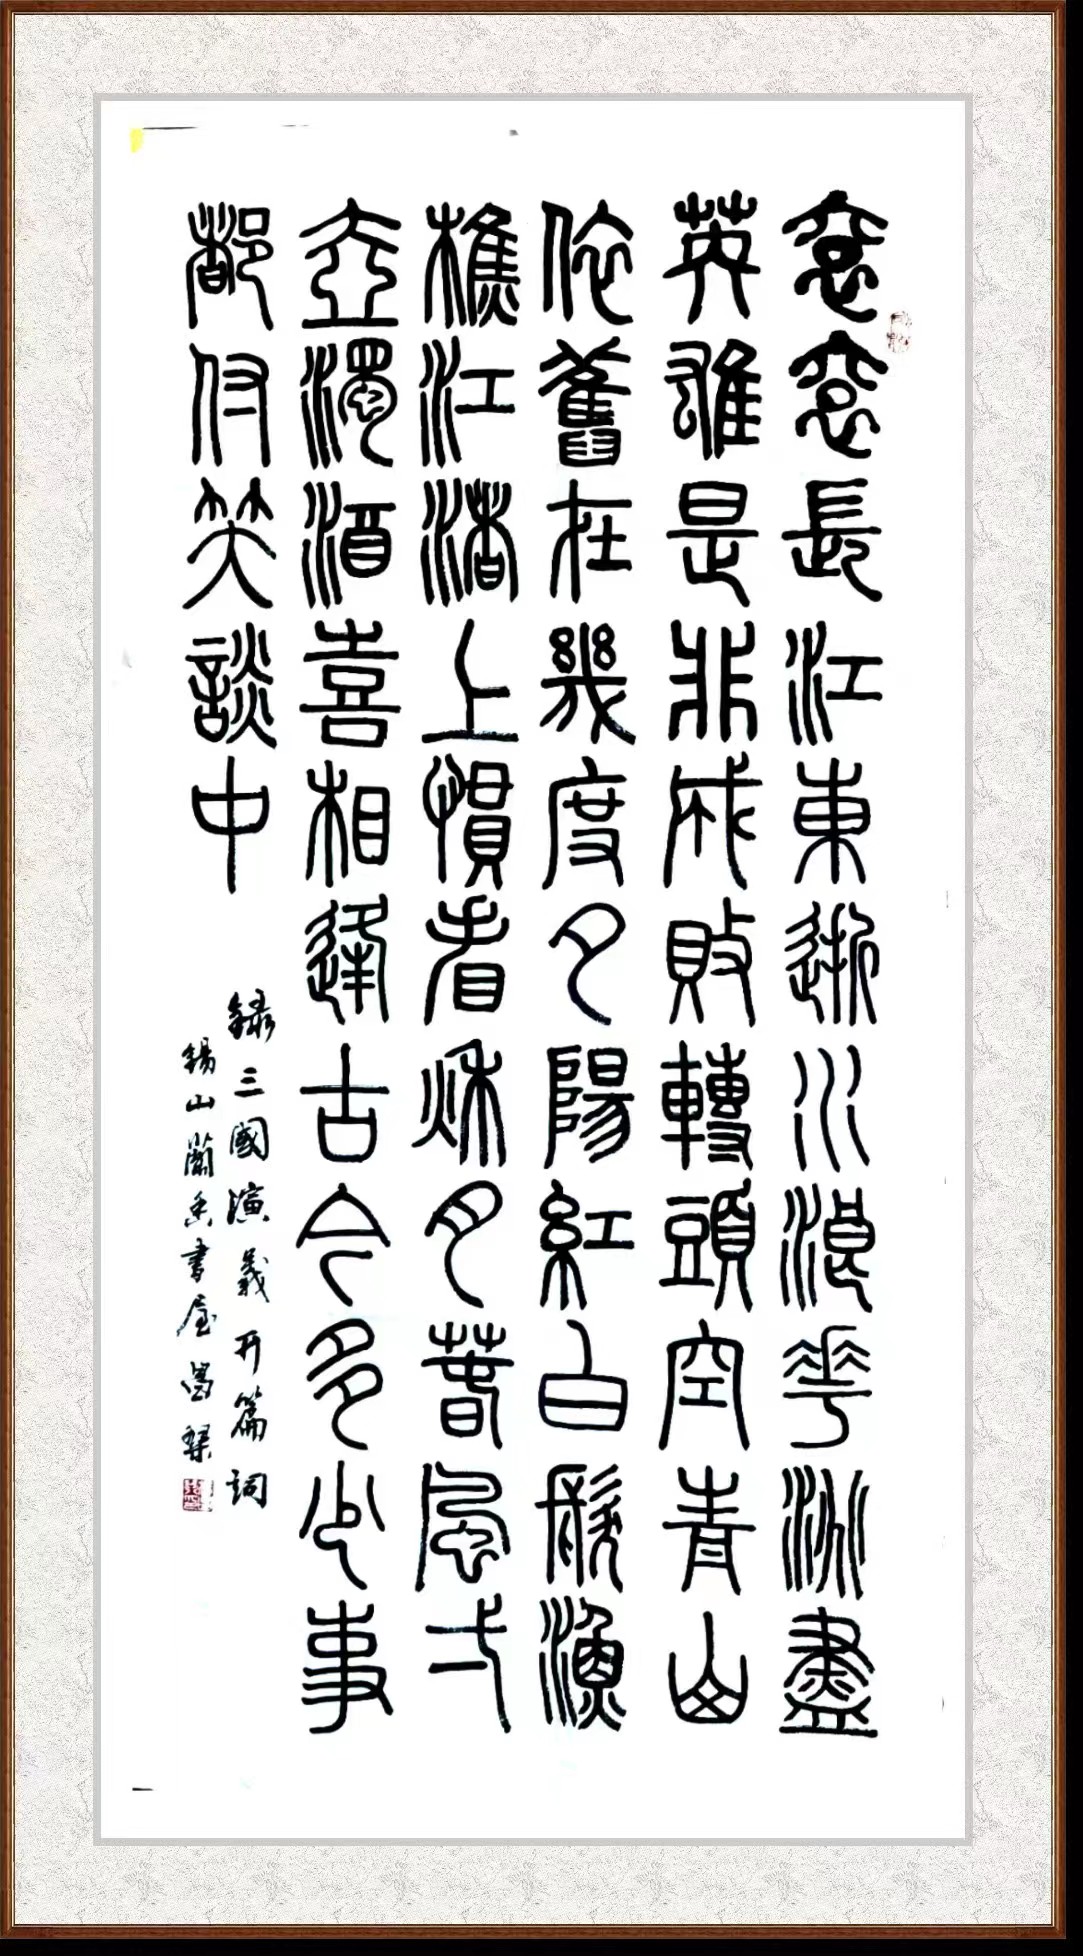 衮衮長江東逝水浪華淘盡
英雄是非成敗轉頭空青山
依舊在幾度夕陽紅白髮漁
樵江渚上慣看秋月春風弌
壺濁酒喜相逢古今多少事
都付笑談中
錄三國演義开篇詞
錫山蘭香書屋